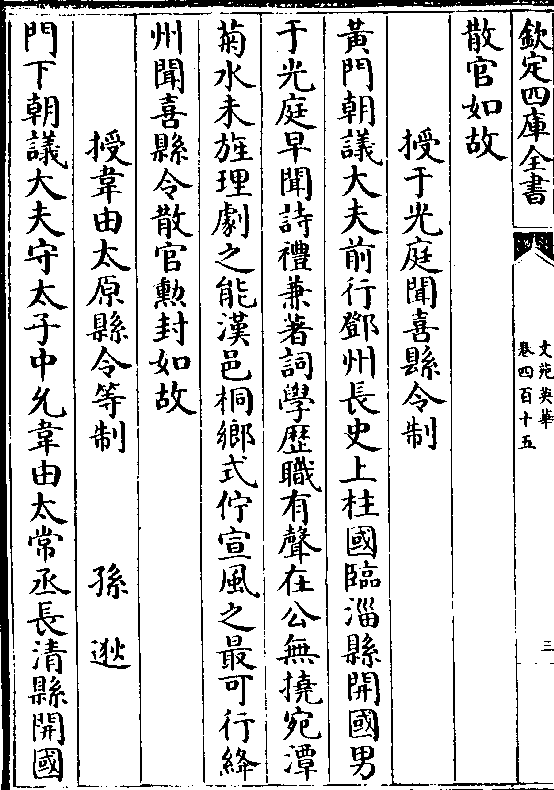 欽定四庫全書
文苑英華
卷四百十五
三
散官如故
授于光庭聞喜縣令制
黃門朝議大夫前行鄧州長史上柱國臨淄縣開國男
于光庭早聞詩禮兼著詞學歷職有聲在公無撓宛潭
菊水未旌理劇之能漢邑桐鄉式佇宣風之最可行絳
州聞喜縣令散官勲封如故
授韋由太原縣令等制 孫逖
門下朝議大夫守太子中允韋由太常丞長清縣開國